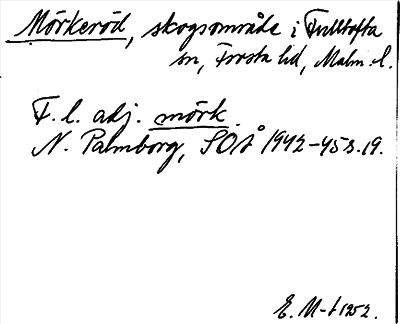 Mörkeröd, skogsområde i Fulltofta
sn, Frosta hd, Malm. l.
F. l. adj. mörk.
N. Palmborg, SOÅ 1942-45 s. 19.
E. M-t 1952.